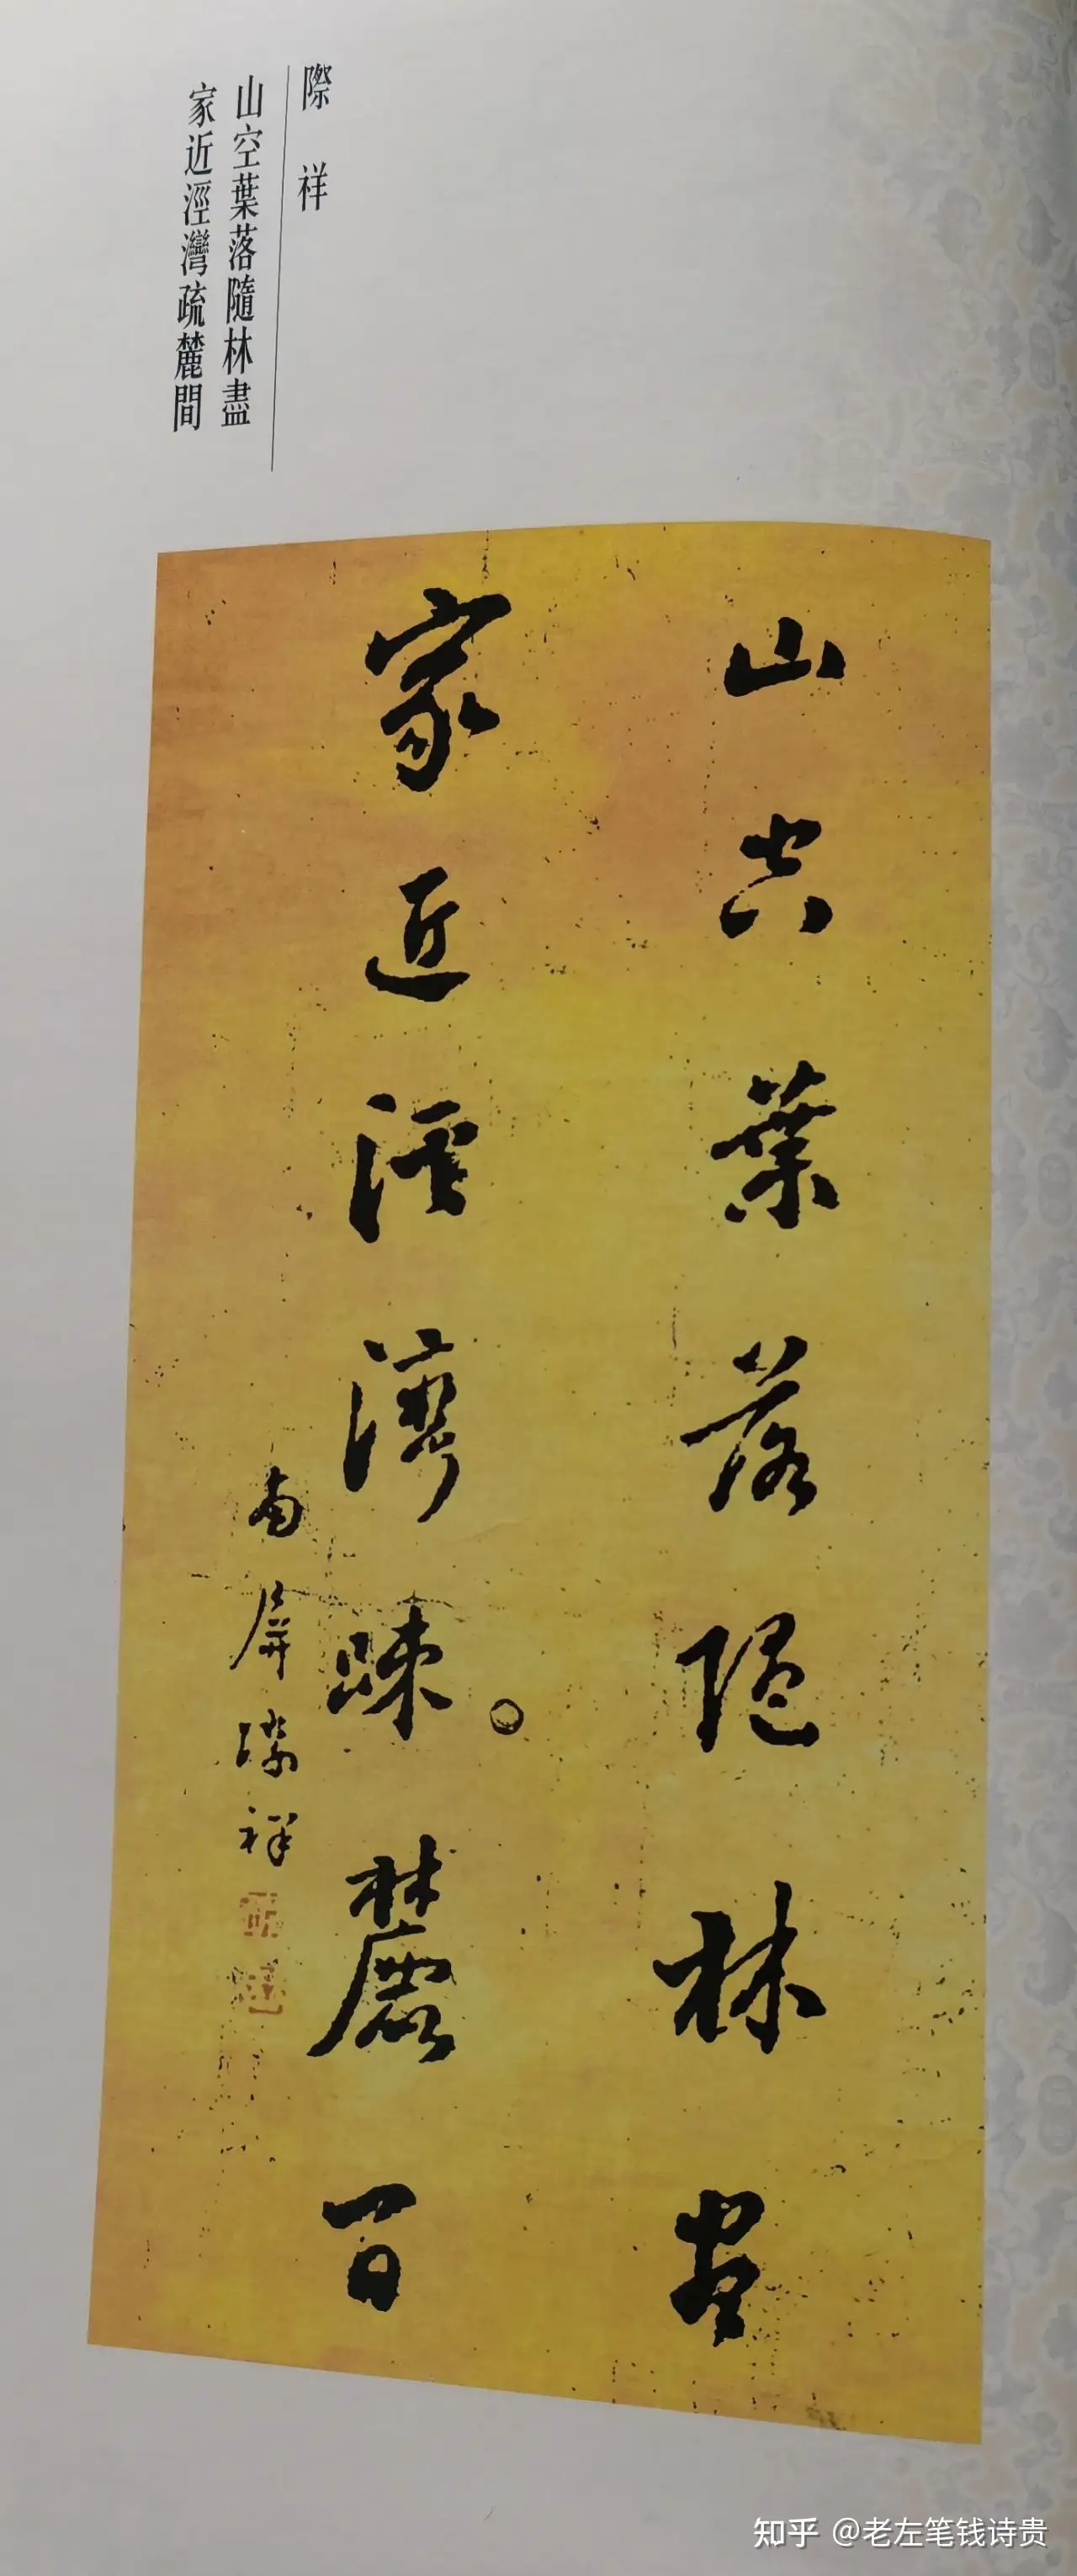 際祥
山空葉落隨林盡
家近涇灣疏麓間
山空葉落隨林盡
家近涇灣踈麓間
南屏際祥
知乎 @老左笔钱诗贵